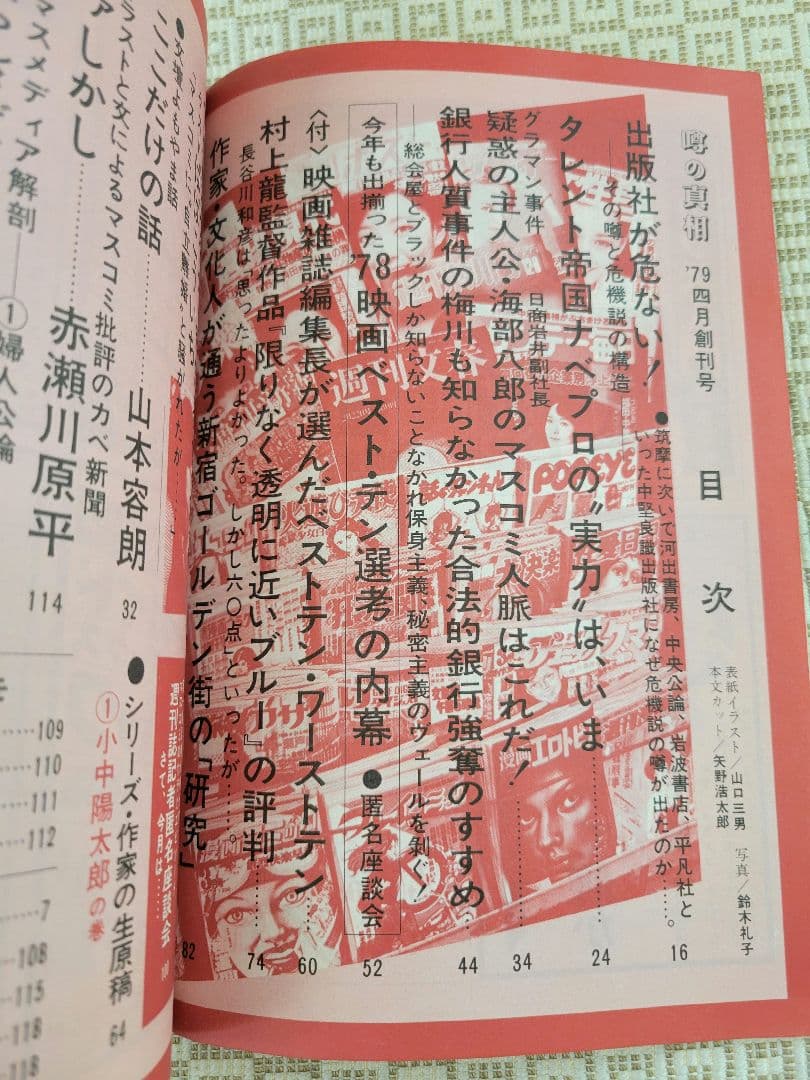 噂の真相 '79四月創刊号
目次
表紙イラスト/山口三男 写真/鈴木礼子
本文カット/矢野浩太郎
出版社が危ない!
―その噂と危機説の構造
●筑摩に次いで河出書房、中央公論、岩波書店、平凡社と
いった中堅良識出版社になぜ危機説の噂が出たのか……。
16
タレント帝国ナベプロの“実力”は、いま……
24
グラマン事件 日商岩井副社長
疑惑の主人公・海部八郎のマスコミ人脈はこれだ!
34
銀行人質事件の梅川も知らなかった合法的銀行強奪のすすめ…
44
―総会屋とブラックしか知らないことなかれ保身主義、秘密主義のヴェールを剝ぐ!
今年も出揃った'78映画ベスト・テン選考の内幕 ●匿名座談会
52
〈付〉映画雑誌編集長が選んだベストテン・ワーストテン
60
村上龍監督作品『限りなく透明に近いブルー』の評判
74
長谷川和彦は「思ったよりよかった。しかし六〇点」といったが……。
作家・文化人が通う新宿ゴールデン街の「研究」
82
●文壇よもやま話
ここだけの話……山本容朗
32
●シリーズ・作家の生原稿
①小中陽太郎の巻
64
週刊誌記者匿名座談会
さて、今月は……
ラストと文によるマスコミ批評のカベ新聞
アしかし……赤瀬川原平
114
マスメディア解剖―①婦人公論
109
110
111
112
7
108
115
118
118